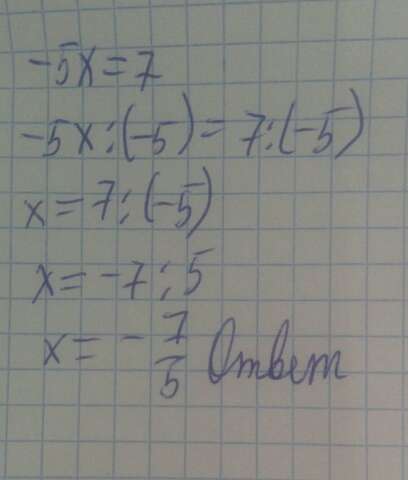 -5x = 7
-5x : (-5) = 7 : (-5)
x = 7 : (-5)
x = -7 : 5
x = - 7/5 Ответ